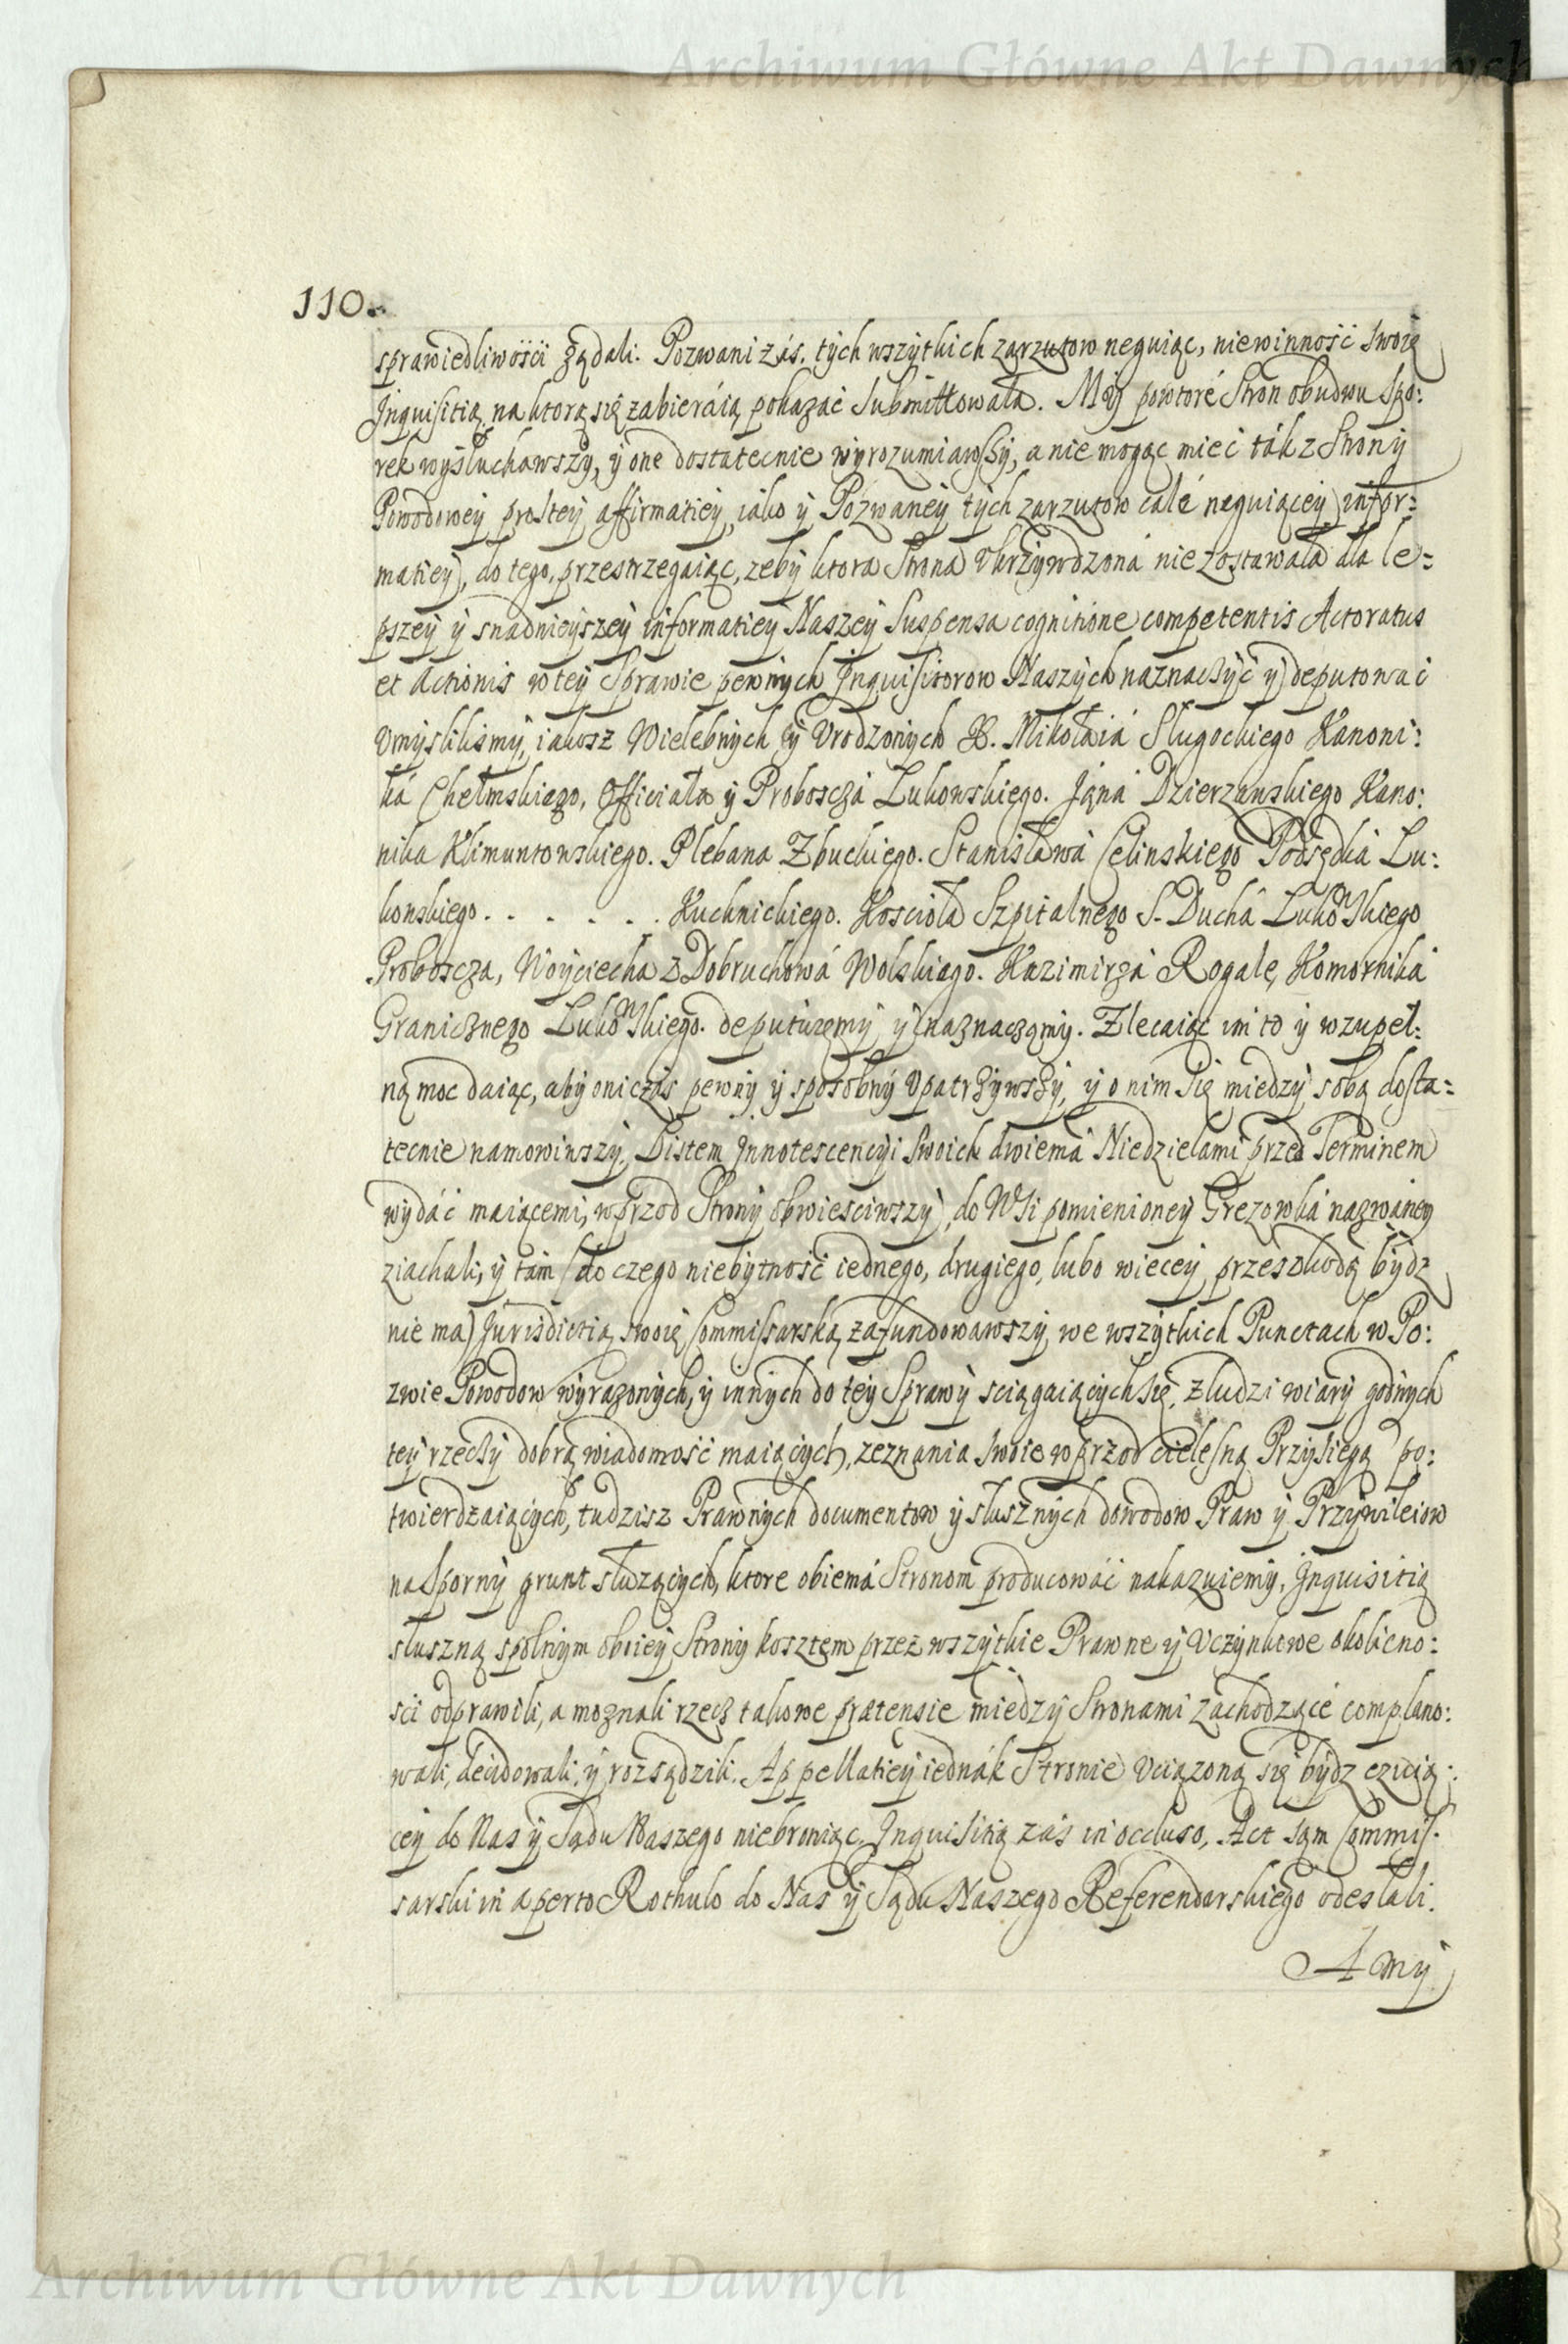 Archiwum Główne Akt Dawnych
110.
sprawiedliwości ządali. Pozwani zás, tych wszytkich zarzutow neguiąc, niewinność swoię
Inquisitią na ktorą się zabieráią pokazać Submittowała. My powtoré Stron obudwu Spo:
rek wysłuchawszy, y one dostatecnie wyrozumiawszy, a nie mogąc mieć ták z Strony
Powodowey prostey affirmatiey, iako y Pozwaney tych zarzutow calé neguiącey infor:
matiey, do tego, przestrzegaiąc, zeby ktora Strona Vkrzywdzoná nie zostawała dla le=
pszey y snadnieyszey informatiey Naszey Suspensa cognitione competentis Actoratus
et Actionis w tey Sprawie pewnych Inquisitorow Naszych naznaczyć y deputować
Vmyslilismy, iakosz Wielebnych y Vrodzonych X. Mikołaiá Sługockiego Kanoni:
ká Chełmskiego, Officiała y Proboscza Lukowskiego. Jąna Dzierzanskiego Kano:
nika Klimuntowskiego. Plebana Zbuckiego. Stanisławá Celinskiego Podsędká Lu:
kowskiego . . . . . . Kuchnickiego. Kosciołá Szpitalnego S. Duchá Lukowskiego
Proboscza, Woyciecha z Dobruchowá Wolskiego. Kazimirzá Rogalę, Komorniká
Granicznego Lukowskiego. deputuięmy y naznaczamy. Zlecaiąc im to y w zupeł:
ną moc daiąc, aby oni czas pewny y sposobny Vpatrzywszy, y o nim się miedzy sobą dosta=
tecnie namowiwszy, Listem Innotescencyi Swoich dwiemá Niedzielami przed Terminem
wydáć maiącemi, wprzod Strony obwiesciwszy, do Wsi pomienioney Grezowká nazwáney
ziachali, y tám (do czego niebytność iednego, drugiego, lubo wiecey przeszkodą bydz
nie ma) Jurisdictią swoię Commissarską zafundowawszy, we wszytkich Punctach w Po:
zwie Powodow wyrazonych, y innych do tey Sprawy sciągaiących się, z ludzi wiary godnych
tey rzeczy dobrą wiadomość maiących, zeznania swoie wprzod cielesną Przysiegą po:
twierdzaiących, tudzisz Prawnych documentow y słusznych dowodow Praw y Przywileiow
na Sporny grunt słuzących, ktore obiemá Stronom producowáć nakazuiemy, Inquisitią
słuszną spolnym oboiey Strony kosztem przez wszytkie Prawne y Vczynkowe okolicno:
sci odprawili, a moznali rzecz takowe prætensie miedzy Stronami zachodzącé complano:
wali, decidowali, y rozsądzili. Appellatiey iednák Stronie Vciązoną się bydz czuią:
cey do Nas y Sądu Naszego niebroniąc. Inquisitią zás in occluso, Act sąm Commis:
sarski in aperto Rothulo do Nas y Sądu Naszego Referendarskiego odesłali.
A my
Archiwum Główne Akt Dawnych